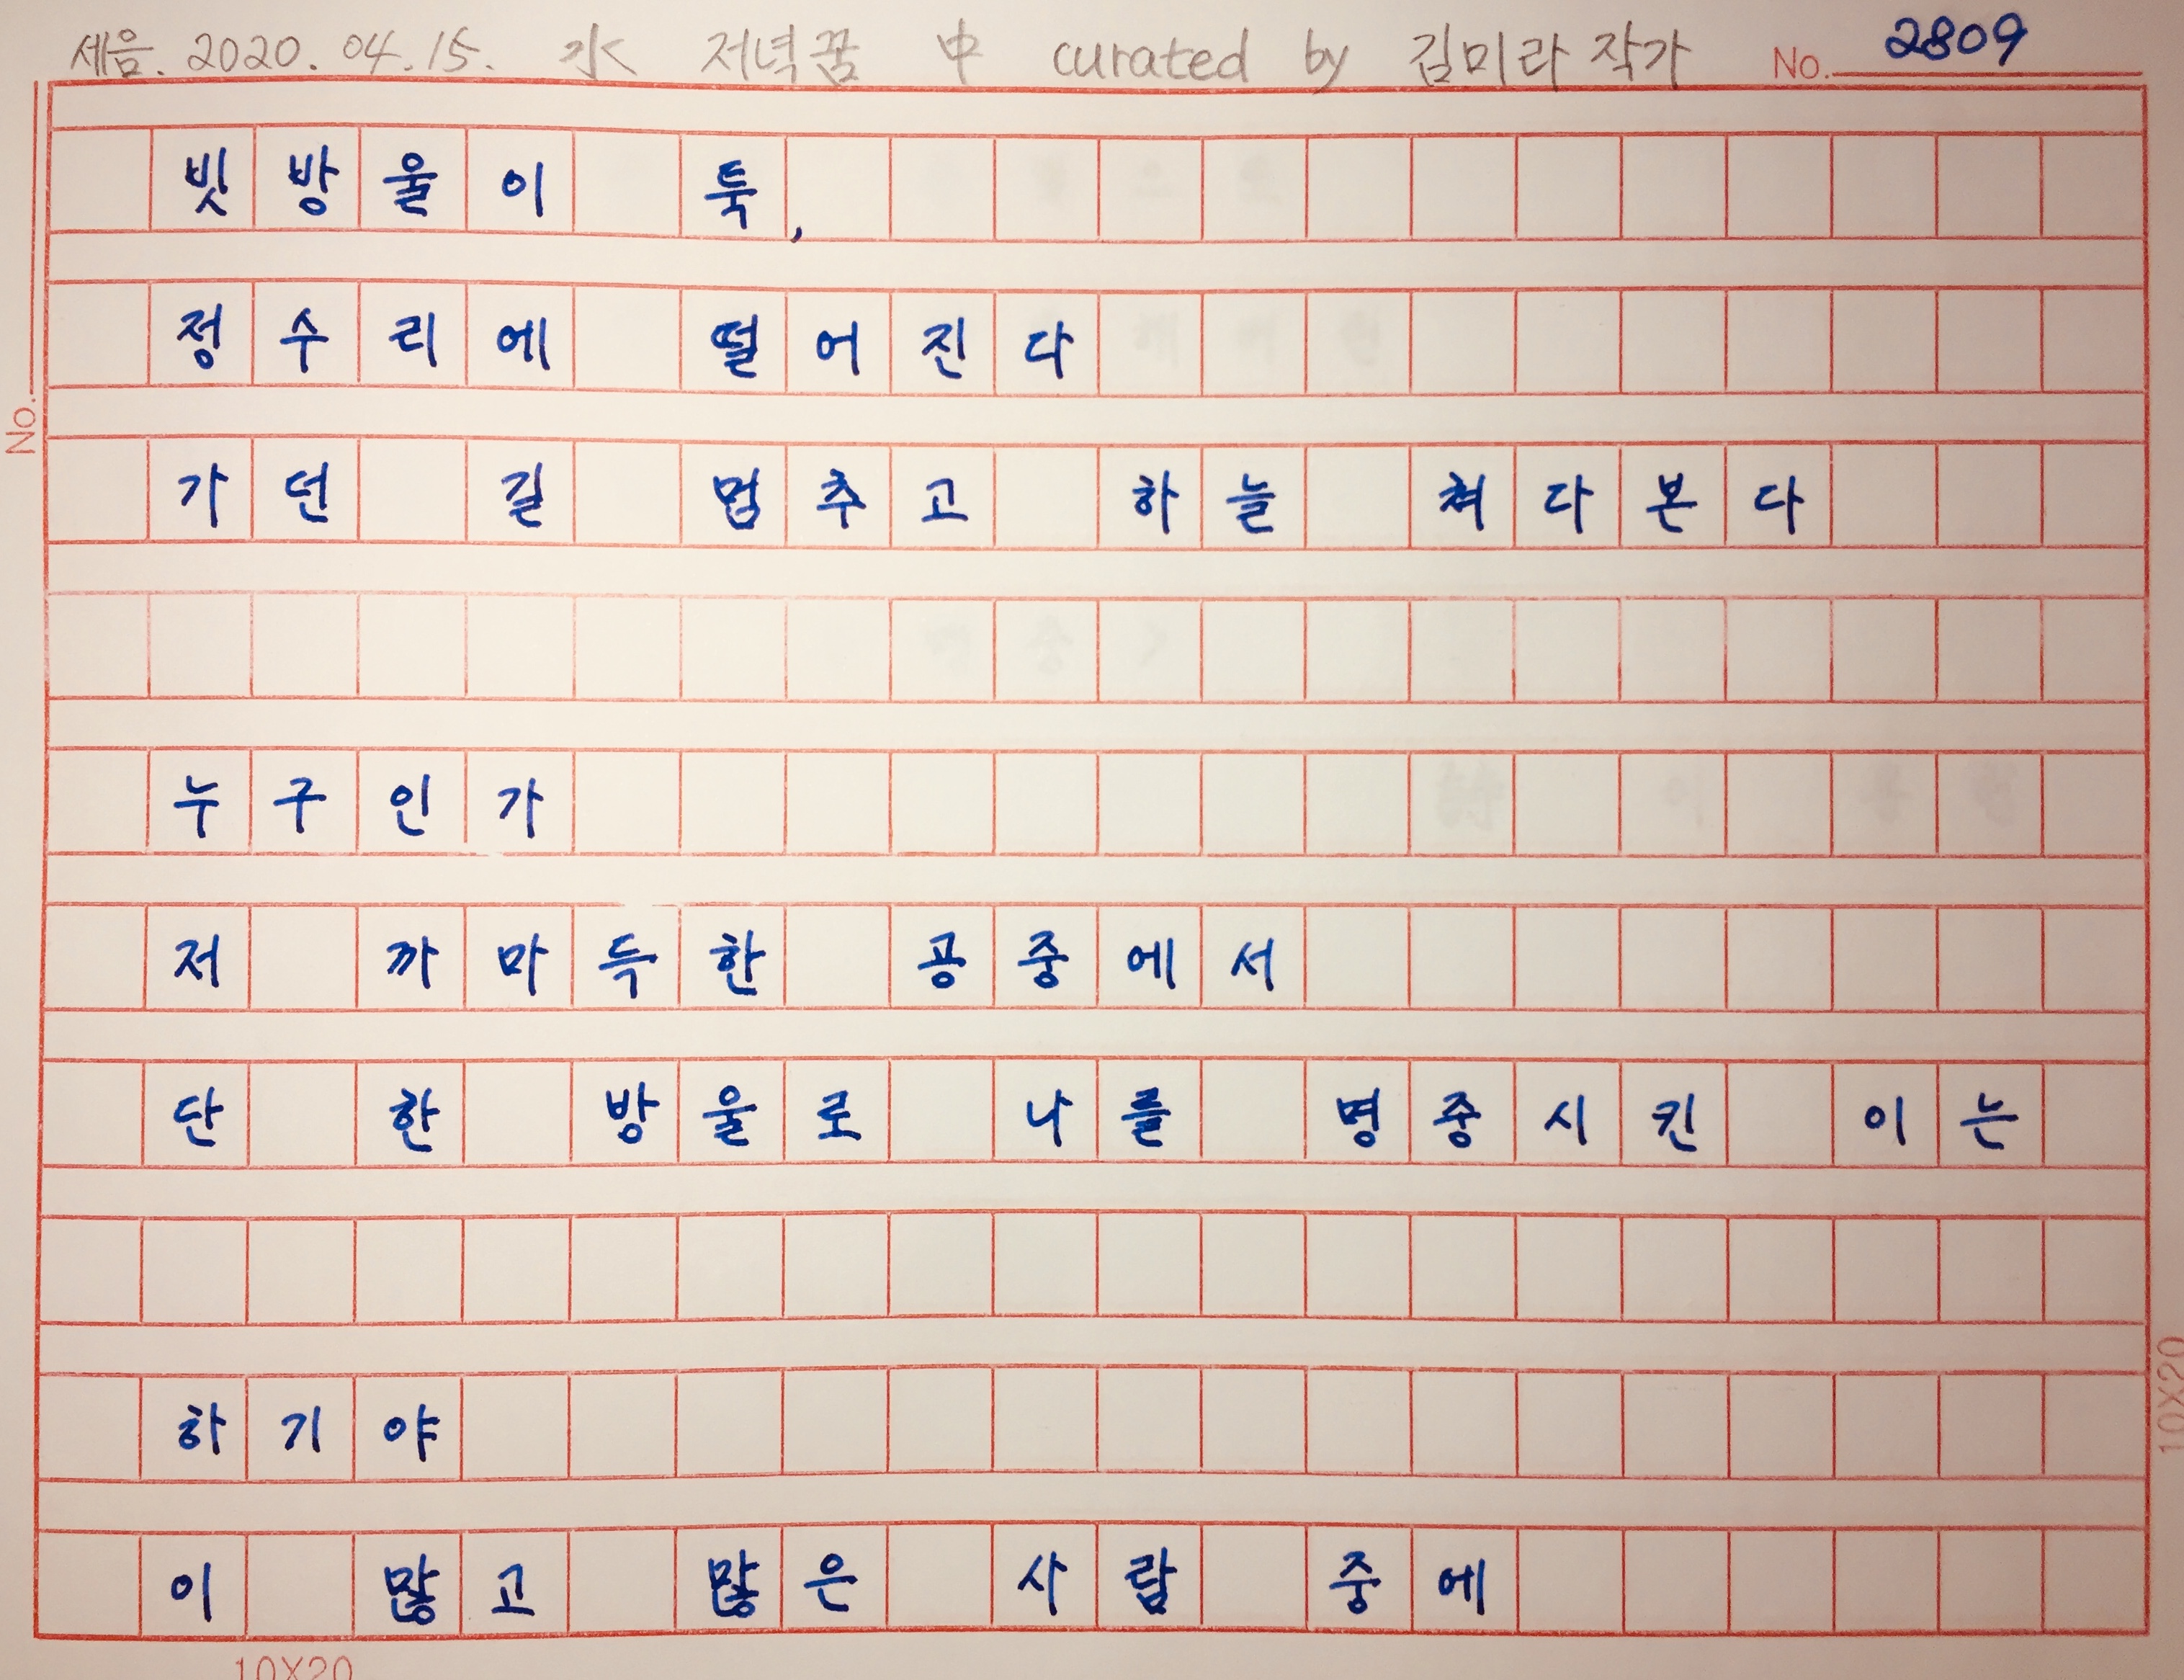 세음. 2020. 04. 15. 水 저녁꿈 中 curated by 김미라 작가 No. 2809
빗방울이 툭,
정수리에 떨어진다
가던 길 멈추고 하늘 쳐다본다
누구인가
저 까마득한 공중에서
단 한 방울로 나를 명중시킨 이는
하기야
이 많고 많은 사람 중에
No.
10X20
10X20